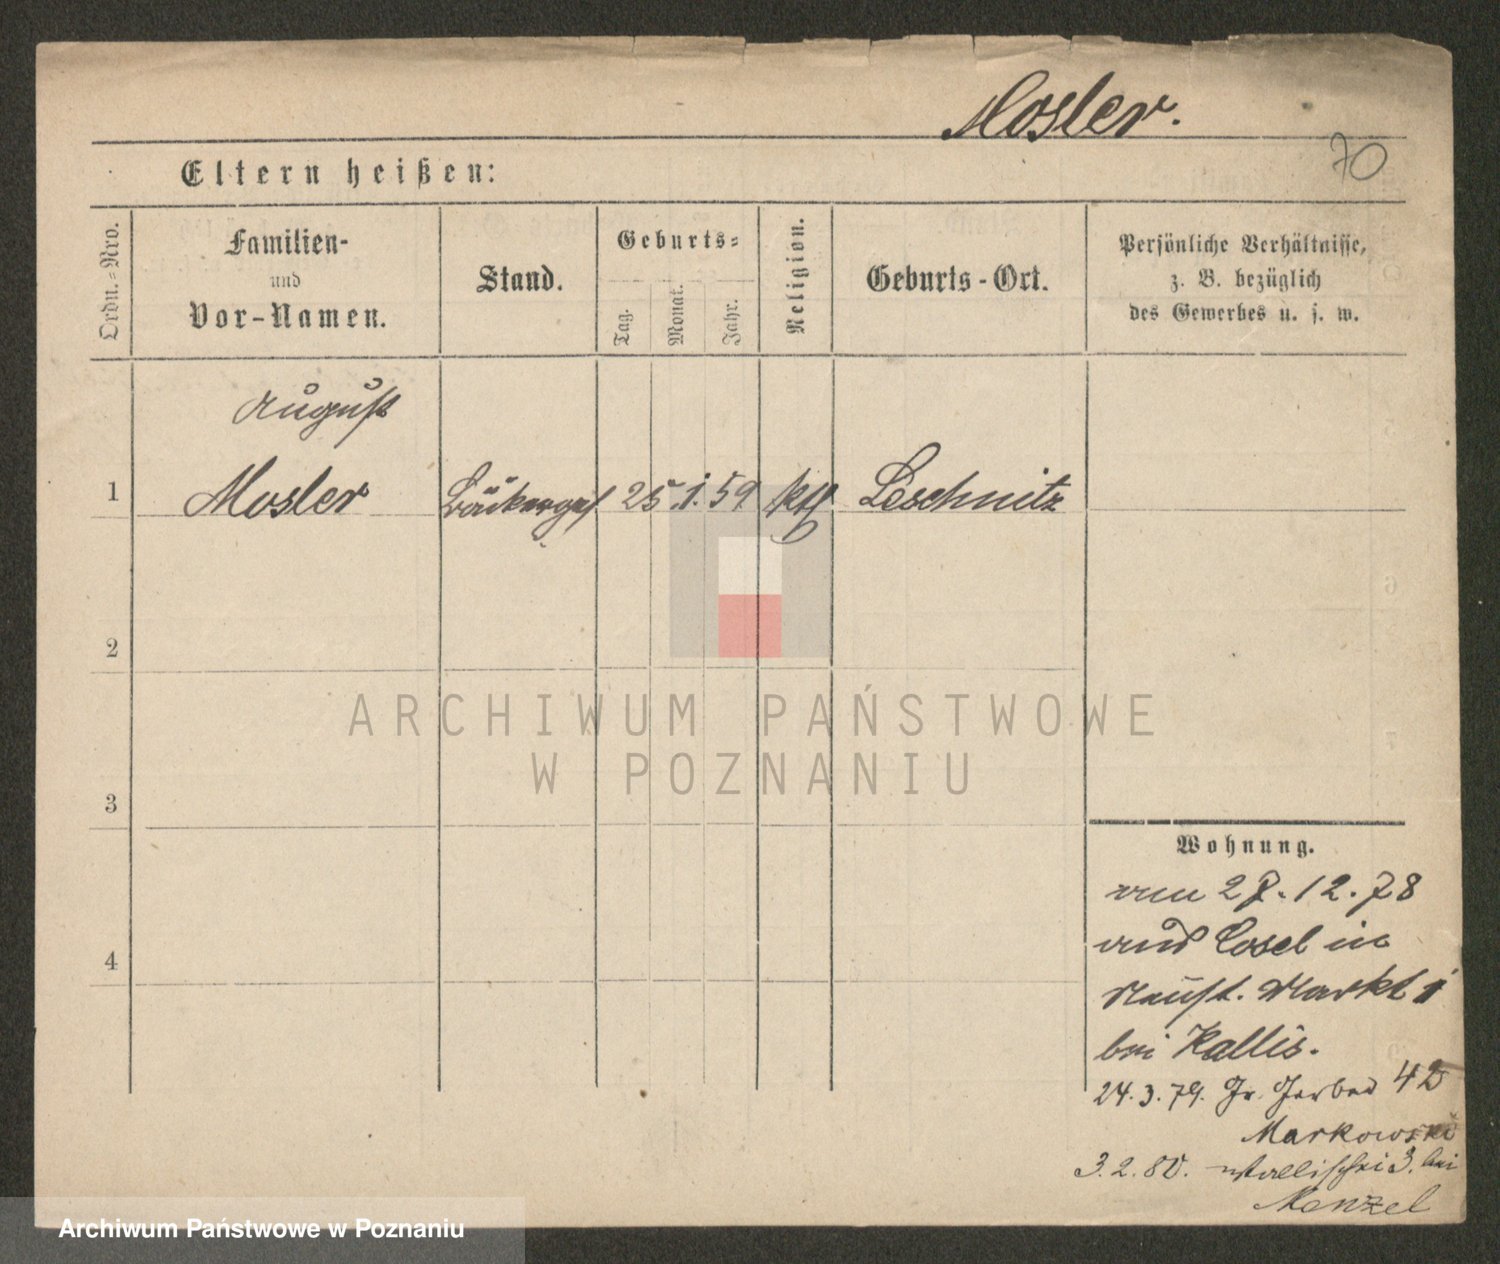 Mosler.
70
Eltern heißen:
Ordn.-Nro.
Familien-
und
Vor-Namen.
Stand.
Geburts-
Tag.
Monat.
Jahr.
Religion.
Geburts-Ort.
Persönliche Verhältnisse,
z. B. bezüglich
des Gewerbes u. s. w.
August
1 Mosler Bäckerges 25. 1. 59 kth Leschnitz
2
ARCHIWUM PAŃSTWOWE
W POZNANIU
3
Wohnung.
12.78
4
Cosel in
Markt 1
bei Kallis.
24.3.79. Gr. Gerber 42
Markowski
3.2.80. Wallischei 3. bei
Menzel
Archiwum Państwowe w Poznaniu